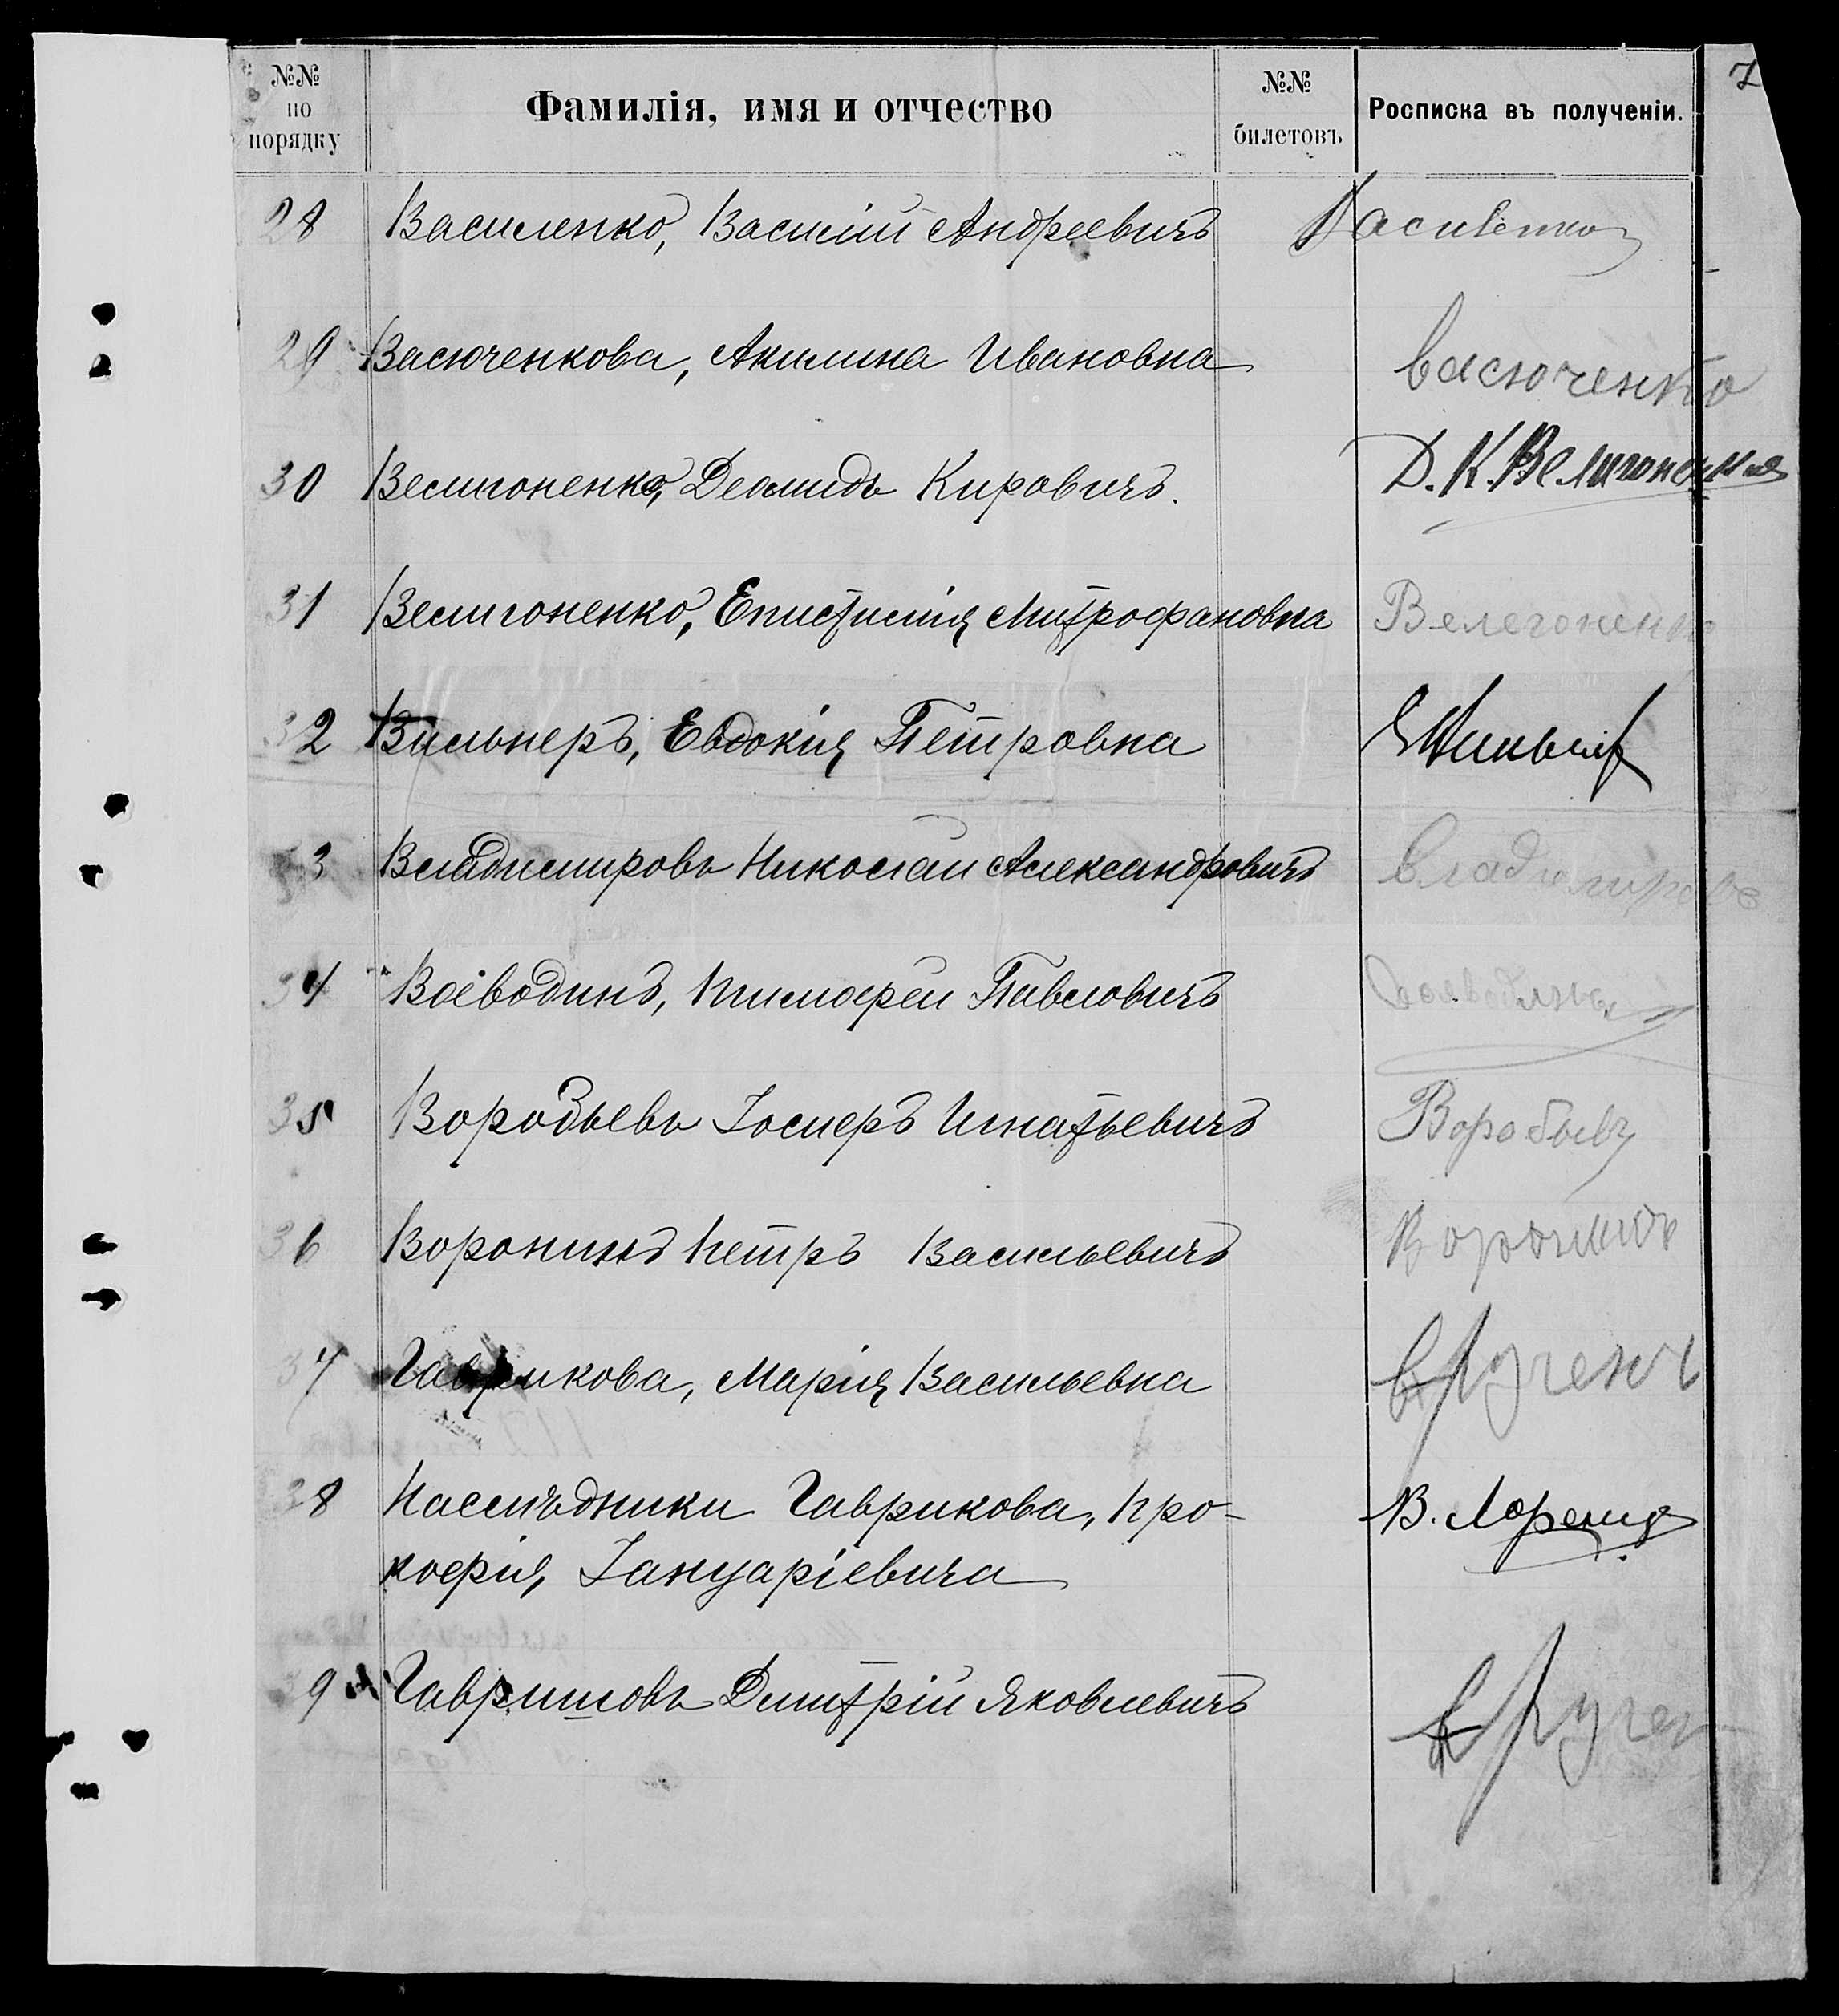 7
№№ по порядку Фамилія, имя и отчество №№ билетовъ Росписка въ полученіи.
28 Василенко, Василій Андреевичъ Василенко
29 Васюченкова, Акилина Ивановна Васюченко
30 Велигоненко, Деомидъ Кировичъ. Д. К. Велигоненко
31 Велигоненко, Епистимія Митрофановна Велегоненко
32 Вильнеръ, Евдокія Петровна
33 Владимировъ Николай Александровичъ Владимировъ
34 Воеводинъ, Тимофей Павловичъ
35 Воробьевъ Іосифъ Игнатьевичъ Воробьевъ
36 Воронинъ Петръ Васильевичъ Воронинъ
37 Гаврикова, Марія Васильевна
38 Наслѣдники Гаврикова, Про-
кофія, Іануаріевича
39 Гавришовъ Дмитрій Яковлевичъ